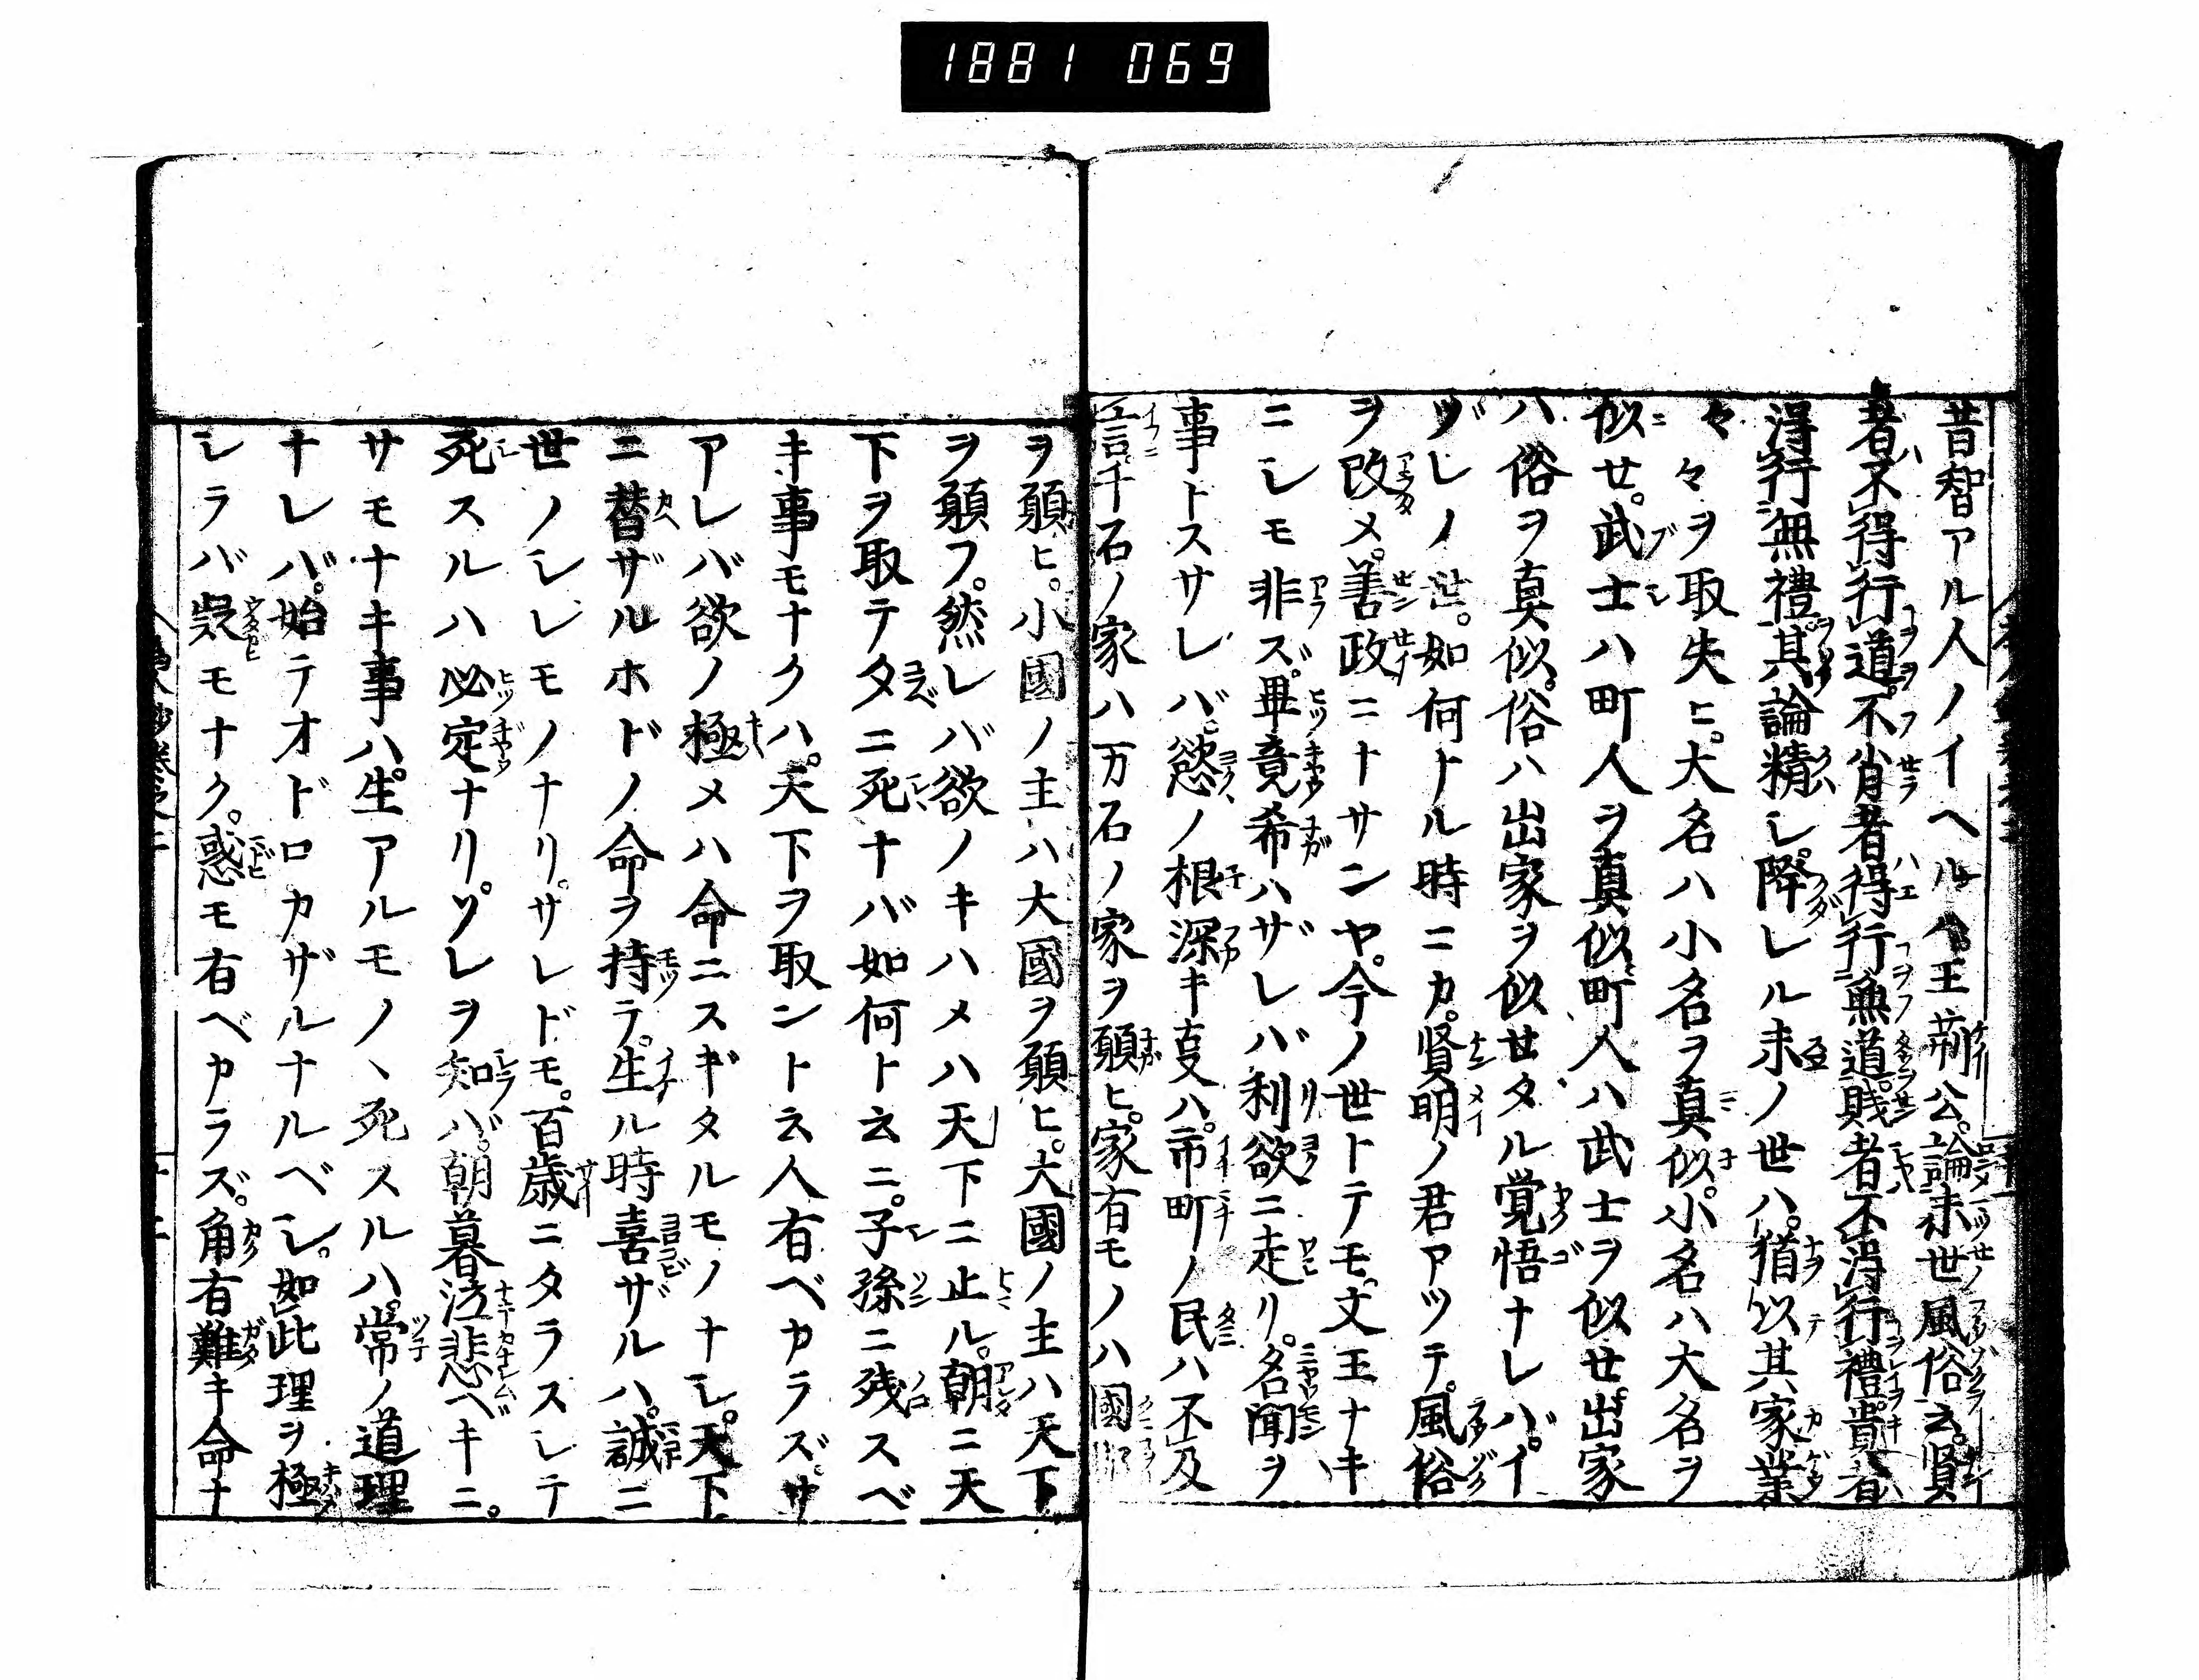 1881 069
昔智アル人ノイヘルハ王荊公論末世風俗云賢
者不得行道。不肖者得行無道。賤者不得行禮。貴者
得行無禮。其論精シ。降レル末ノ世ハ。猶以其家業
々々ヲ取失ヒ。大名ハ小名ヲ真似。小名ハ大名ヲ
似セ。武士ハ町人ヲ真似町人ハ武士ヲ似セ。出家
ハ俗ヲ真似。俗ハ出家ヲ似セタル覚悟ナレバ。イ
ヅレノ世。如何トル時ニカ。賢明ノ君アツテ。風俗
ヲ改メ。善政ニナサンヤ。今ノ世トテモ。文王ナキ
ニシモ非ズ。畢竟希ハザレバ利欲ニ走リ。名聞ヲ
事トスサレバ。慾ノ根深キ叓ハ。市町ノ民ハ不及
言。千石ノ家ハ万石ノ家ヲ願ヒ。家有モノハ國
ヲ願ヒ。小國ノ主ハ大國ヲ願ヒ。大國ノ主ハ天下
ヲ願フ。然レバ欲ノキハメハ天下ニ止ル。朝ニ天
下ヲ取テ夕ニ死ナバ如何ト云ニ。子孫ニ残スベ
キ事モナクハ。天下ヲ取ントス人有ベカラズ。サ
アレバ欲ノ極メハ命ニスギタルモノナシ。天下
ニ替ザルホドノ命ヲ持テ。生ル時喜ザルハ。誠ニ
世ノシレモノナリ。サレドモ。百歳ニタラスシテ
死スルハ必定ナリ。ソレヲ知バ。朝暮泣悲ベキニ。
サモナキ事ハ。生アルモノヽ死スルハ。常ノ道理
ナレバ。始テオドロカザルナルベシ。如此理ヲ極
シラバ。疑モナク。惑モ有ベカラズ。角有難キ命ナ